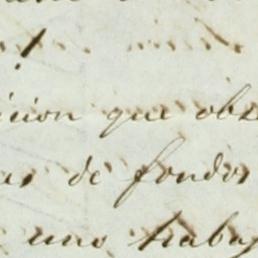 icion que obs
as de fondos
uno trabaj